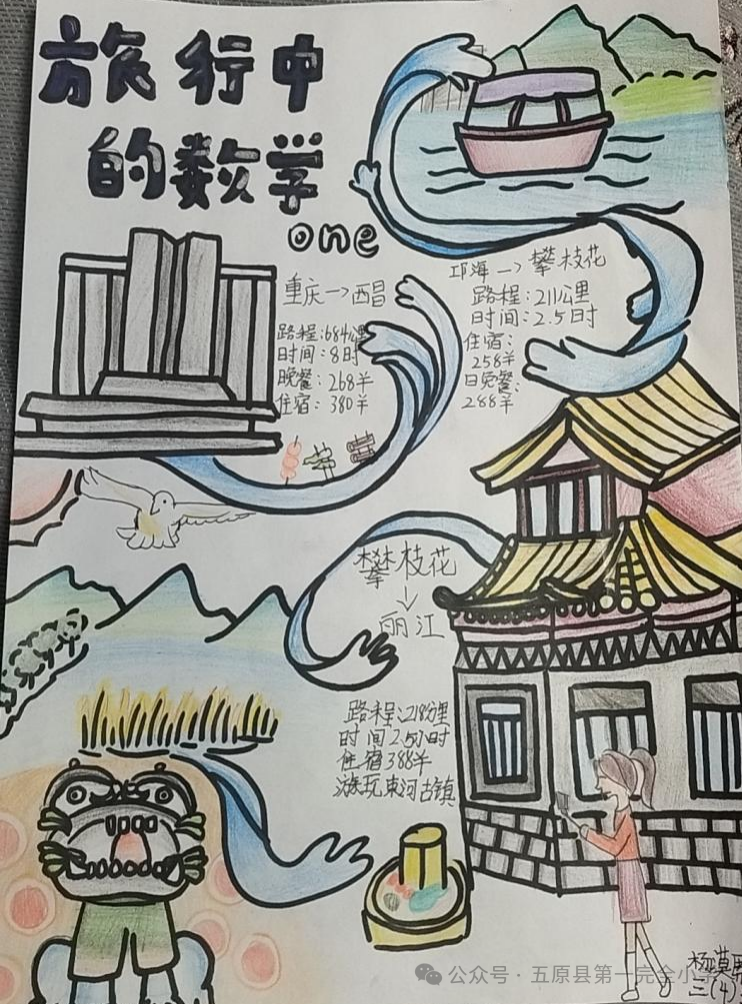 旅行中
的数学
one
重庆→西昌
路程:684公里
时间:8时
晚餐:268羊
住宿:380羊
邛海→攀枝花
路程:211公里
时间:2.5时
住宿:
258羊
日免餐:
288羊
攀枝花
↓
丽江
路程:218公里
时间2.5小时
住宿388羊
游玩束河古镇
杨漠
三(4)
公众号·五原县第一完全小学